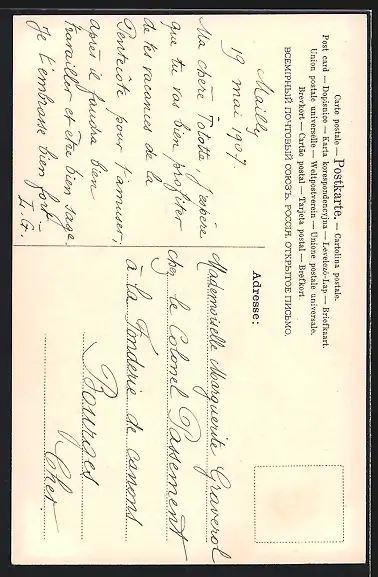 Carte postale — Postkarte. — Cartolina postale.
Post card — Dopisnice — Karta korespondencyjna — Levelező-Lap — Briefkaart.
Union postale universelle — Weltpostverein — Unione postale universale.
Brevkort — Cartão postal — Tarjeta postal — Brefkort.
ВСЕМІРНЫЙ ПОЧТОВЫЙ СОЮЗЪ. РОССІЯ. ОТКРЫТОЕ ПИСЬМО.
Adresse:
Mailly
19 mai 1907.
Ma chère Tolotte, j'espère
que tu vas bien profiter
de tes vacances de la
Pentecôte pour t'amuser,
après il faudra bien
travailler et être bien sage
Je t'embrasse bien fort —
Mademoiselle Marguerite Graverol
chez le Colonel Passement
à la Fonderie de canons
Bourges
Cher